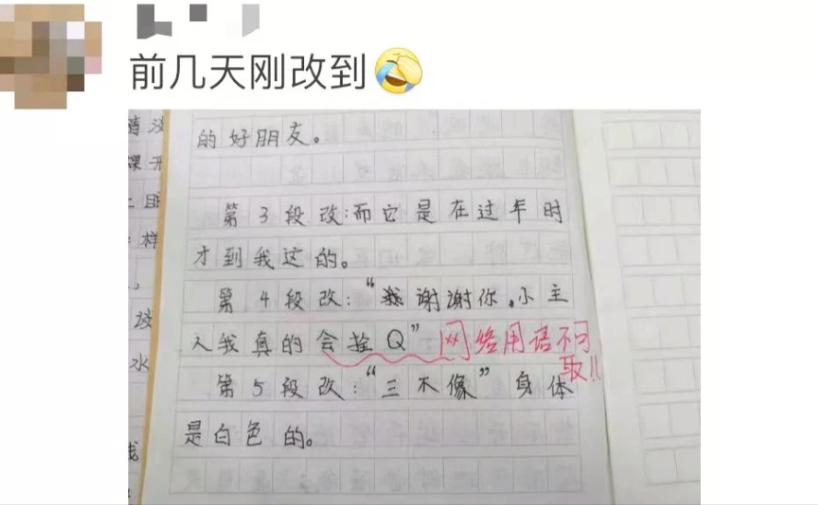 前几天刚改到🤣
的好朋友。
第3段改:而它是在过年时
才到我这的。
第4段改:“谢谢你,小主
人我真的会拴Q”
网络用语不可
取!!
第5段改:“三不像”身体
是白色的。